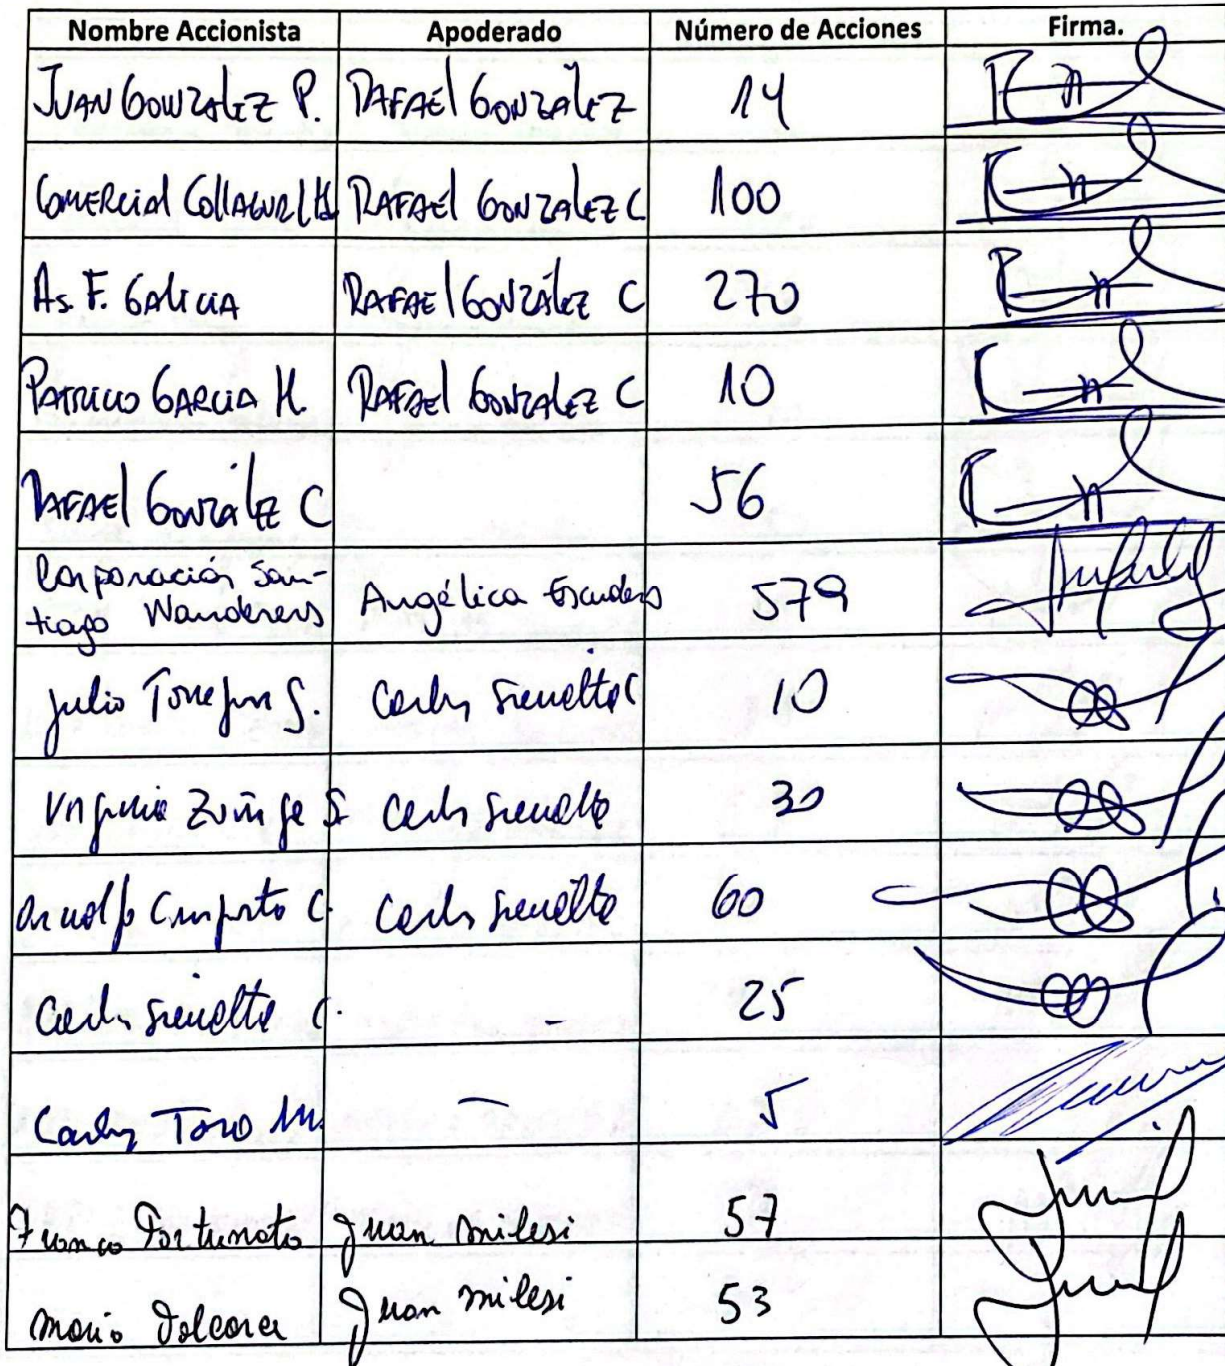 Nombre Accionista Apoderado Número de Acciones Firma.
JUAN GONZALEZ P. RAFAEl GONZALEZ 14
COMERCIAl RAFAEl GONZALEZ C 100
As F. GALICIA RAFAEl GONZÁLEZ C 270
PATRICIO GARCIA H. RAFAEl GONZALEZ C 10
RAFAEl GONZÁLEZ C 56
Corporación San-
tiago Wanderers Angélica Escudero 579
Julio Torrejon S. Carlos 10
Virginia Zuñiga S Carlos 30
Arnoldo C. Carlos 60
Carlos C. - 25
Carlos Toro M. — 5
Franco Fortunato Juan milesi 57
Mario Juan milesi 53